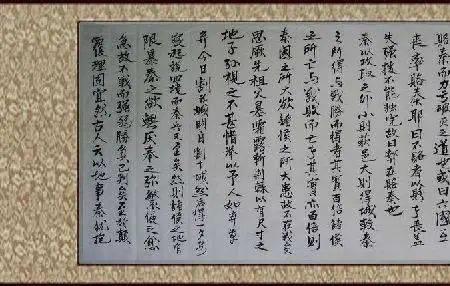 賂秦而力虧破灭之道也或曰六國互
喪率賂秦耶曰不賂者以賂者喪蓋
失强援不能独完故曰弊在賂秦也
秦以攻取之外小則获邑大則得城較秦
之所得与戰勝而得者其實百倍諸侯
之所亡与戰敗而亡者其實亦百倍則
秦國之所大欲諸侯之所大患故不在戰矣
思厥先祖父暴霜露斬荆棘以有尺寸之
地子孫視之不甚惜举以予人如弃草
芥今日割五城明日割十城然后得一夕安
寢起視四境而秦兵又至矣然則諸侯之地有
限暴秦之欲無厌奉之弥繁侵之愈
急故不戰而强弱勝負已判矣至於顛
覆理固宜然古人云以地事秦犹抱